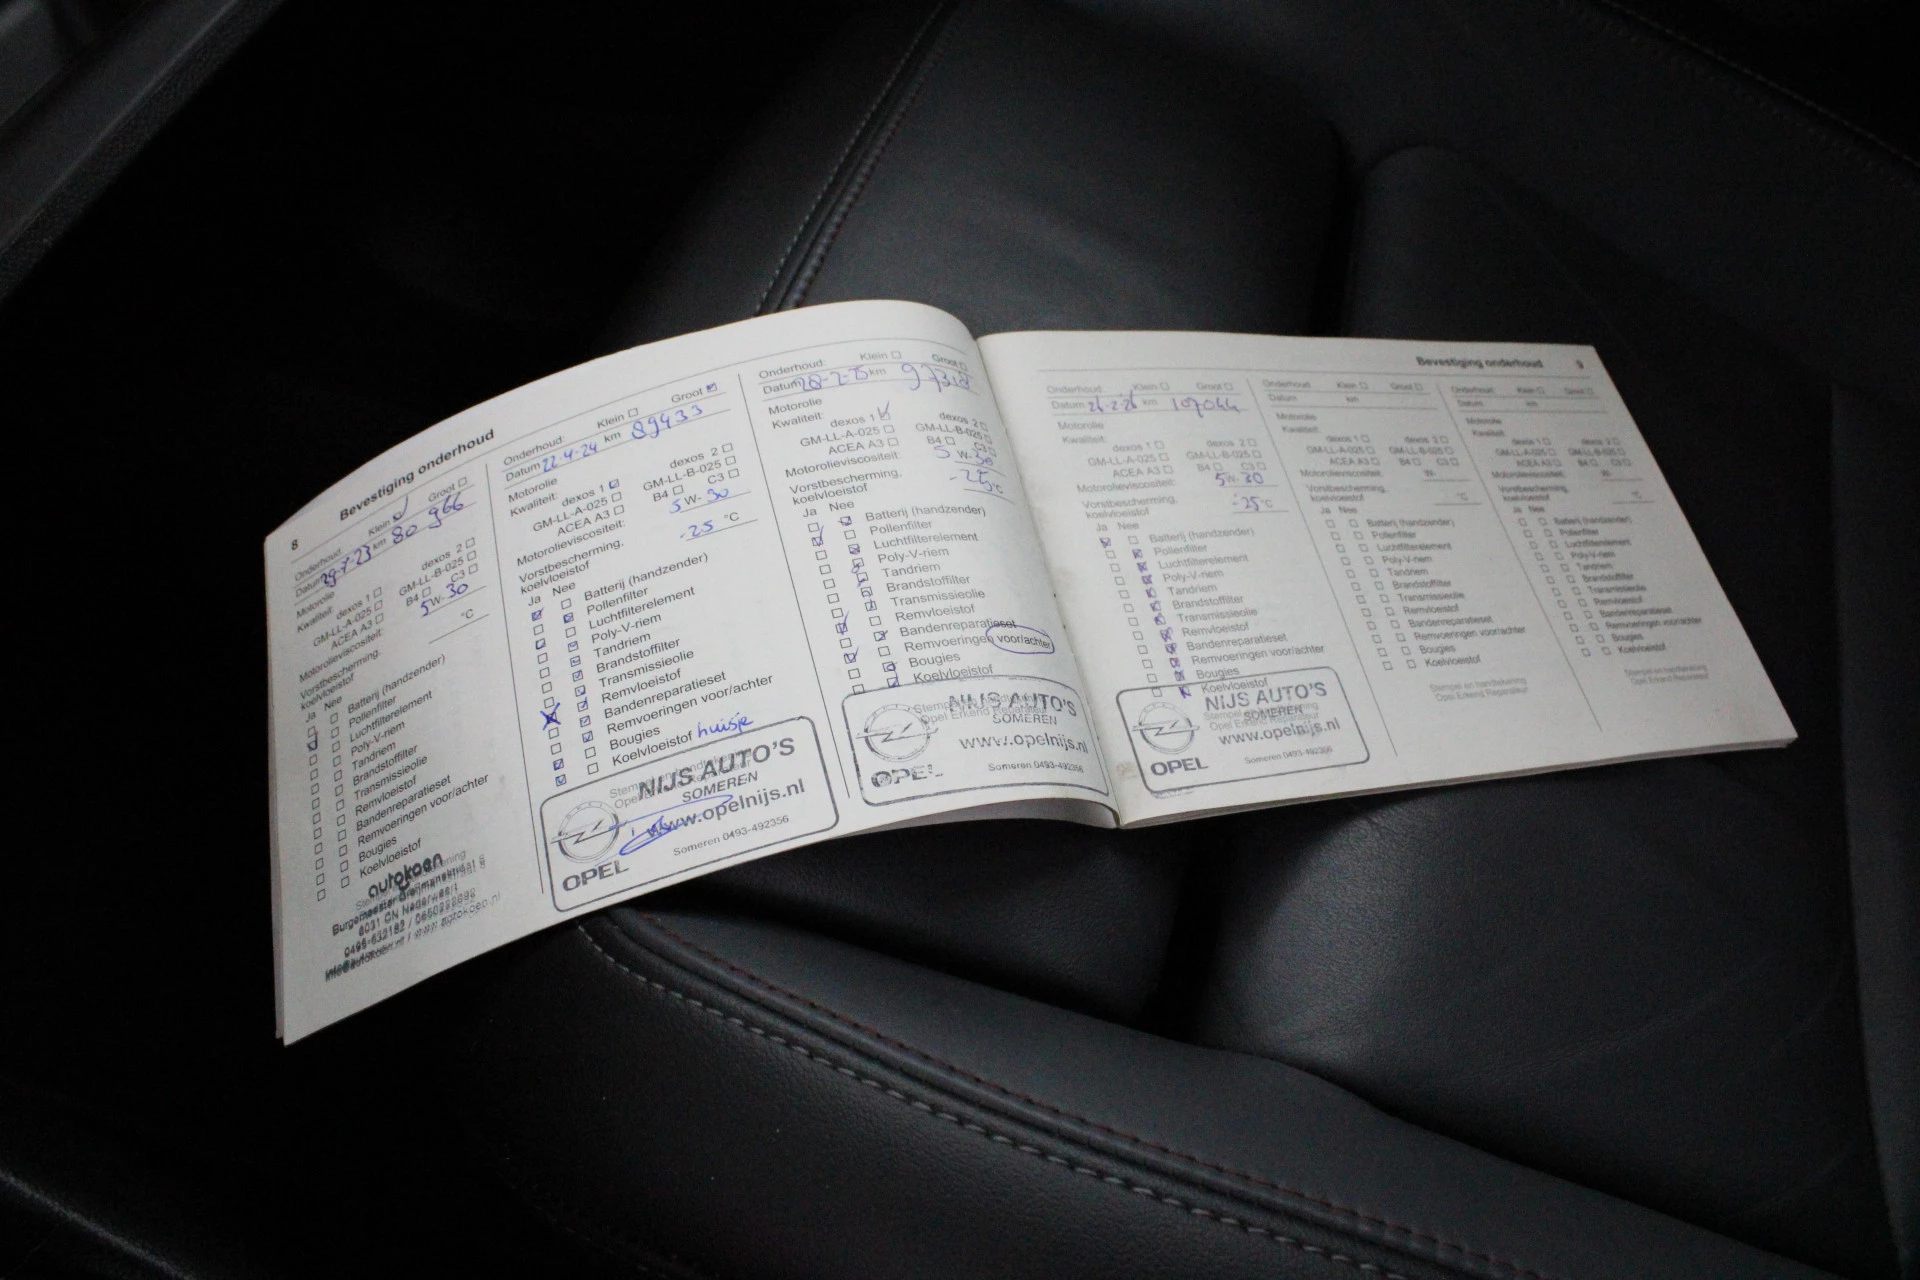 8
Bevestiging onderhoud
Onderhoud: Klein Groot
Datum 29-7-23 km 80 966
Motorolie
Kwaliteit: dexos 1 dexos 2
GM-LL-A-025 GM-LL-B-025
ACEA A3 B4 C3
Motorolieviscositeit: 5 W- 30
Vorstbescherming, °C
koelvloeistof
Ja Nee
Batterij (handzender)
Pollenfilter
Luchtfilterelement
Poly-V-riem
Tandriem
Brandstoffilter
Transmissieolie
Remvloeistof
Bandenreparatieset
Remvoeringen voor/achter
Bougies
Koelvloeistof
autokoen
6031 GN Nederweert
Onderhoud: Klein Groot
Datum 22-4-24 km 89433
Motorolie
Kwaliteit: dexos 1 dexos 2
GM-LL-A-025 GM-LL-B-025
ACEA A3 B4 C3
Motorolieviscositeit: 5 W- 30
Vorstbescherming, -25 °C
koelvloeistof
Ja Nee
Batterij (handzender)
Pollenfilter
Luchtfilterelement
Poly-V-riem
Tandriem
Brandstoffilter
Transmissieolie
Remvloeistof
Bandenreparatieset
Remvoeringen voor/achter
Bougies
Koelvloeistof huisje
NIJS AUTO'S
SOMEREN
www.opelnijs.nl
Someren 0493-492356
OPEL
Onderhoud: Klein Groot
Datum 28-2-25 km 97318
Motorolie
Kwaliteit: dexos 1 dexos 2
GM-LL-A-025 GM-LL-B-025
ACEA A3 B4 C3
Motorolieviscositeit: 5 W- 30
Vorstbescherming, -25 °C
koelvloeistof
Ja Nee
Batterij (handzender)
Pollenfilter
Luchtfilterelement
Poly-V-riem
Tandriem
Brandstoffilter
Transmissieolie
Remvloeistof
Bandenreparatieset
Remvoeringen voor/achter
Bougies
Koelvloeistof
NIJS AUTO'S
SOMEREN
www.opelnijs.nl
Someren 0493-492356
OPEL
Bevestiging onderhoud 9
Onderhoud: Klein Groot
Datum 26-2-26 km 107044
Motorolie
Kwaliteit: dexos 1 dexos 2
GM-LL-A-025 GM-LL-B-025
ACEA A3 B4 C3
Motorolieviscositeit: 5 W- 30
Vorstbescherming, -25 °C
koelvloeistof
Ja Nee
Batterij (handzender)
Pollenfilter
Luchtfilterelement
Poly-V-riem
Tandriem
Brandstoffilter
Transmissieolie
Remvloeistof
Bandenreparatieset
Remvoeringen voor/achter
Bougies
Koelvloeistof
NIJS AUTO'S
SOMEREN
www.opelnijs.nl
Someren 0493-492356
OPEL
Onderhoud: Klein Groot
Datum km
Motorolie
Kwaliteit: dexos 1 dexos 2
GM-LL-A-025 GM-LL-B-025
ACEA A3 B4 C3
Motorolieviscositeit: W-
Vorstbescherming, °C
koelvloeistof
Ja Nee
Batterij (handzender)
Pollenfilter
Luchtfilterelement
Poly-V-riem
Tandriem
Brandstoffilter
Transmissieolie
Remvloeistof
Bandenreparatieset
Remvoeringen voor/achter
Bougies
Koelvloeistof
Stempel en handtekening
Opel Erkend Reparateur
Onderhoud: Klein Groot
Datum km
Motorolie
Kwaliteit: dexos 1 dexos 2
GM-LL-A-025 GM-LL-B-025
ACEA A3 B4 C3
Motorolieviscositeit: W-
Vorstbescherming, °C
koelvloeistof
Ja Nee
Batterij (handzender)
Pollenfilter
Luchtfilterelement
Poly-V-riem
Tandriem
Brandstoffilter
Transmissieolie
Remvloeistof
Bandenreparatieset
Remvoeringen voor/achter
Bougies
Koelvloeistof
Stempel en handtekening
Opel Erkend Reparateur